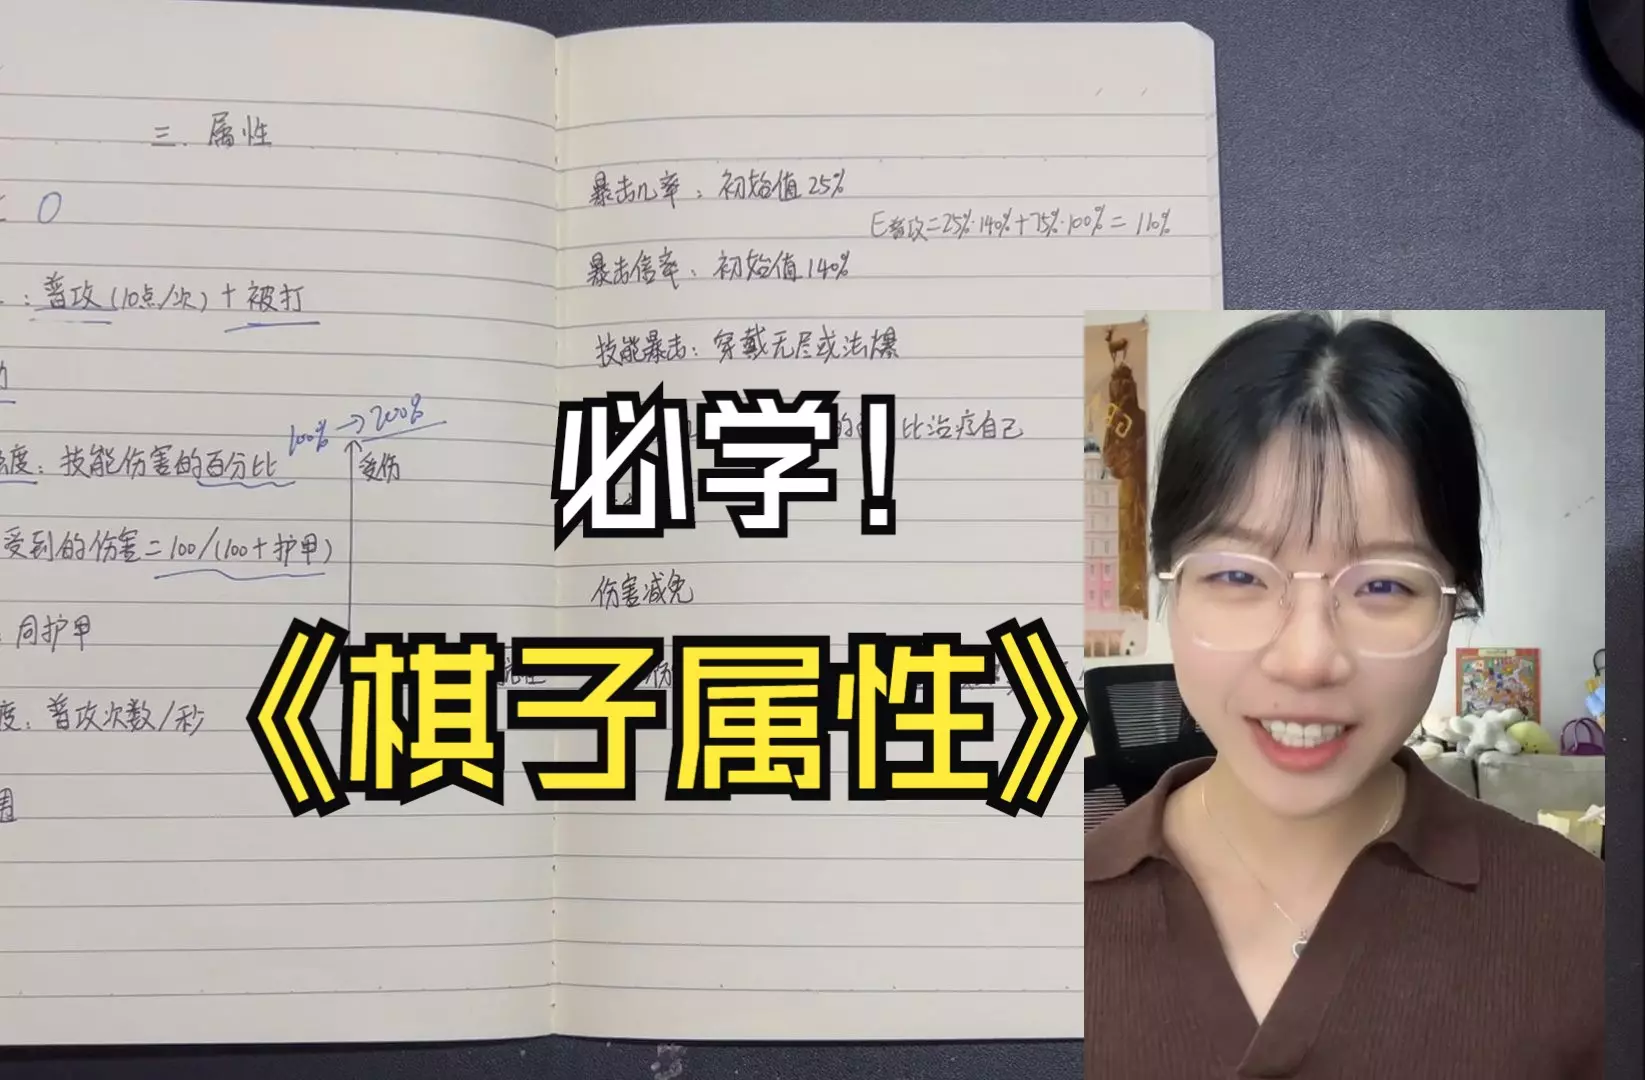 三、属性
0
：普攻(10点/次)+被打
100%→200%
度：技能伤害的百分比
受伤
受到的伤害=100/(100+护甲)
同护甲
度：普攻次数/秒
暴击几率：初始值25%
E普攻=25%·140%+75%·100%=110%
暴击倍率：初始值140%
技能暴击：穿戴无尽或法爆
比治疗自己
伤害减免
必学！
《棋子属性》